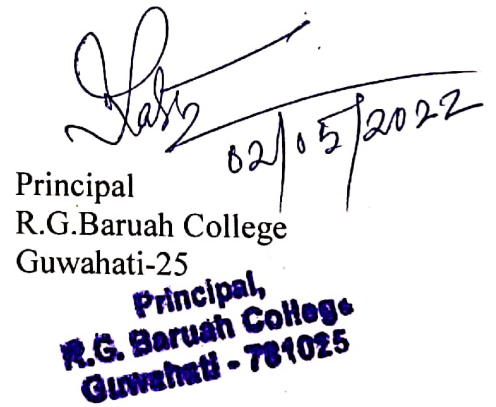 02/05/2022
Principal
R.G.Baruah College
Guwahati-25
Principal,
R.G. Baruah College
Guwahati - 781025